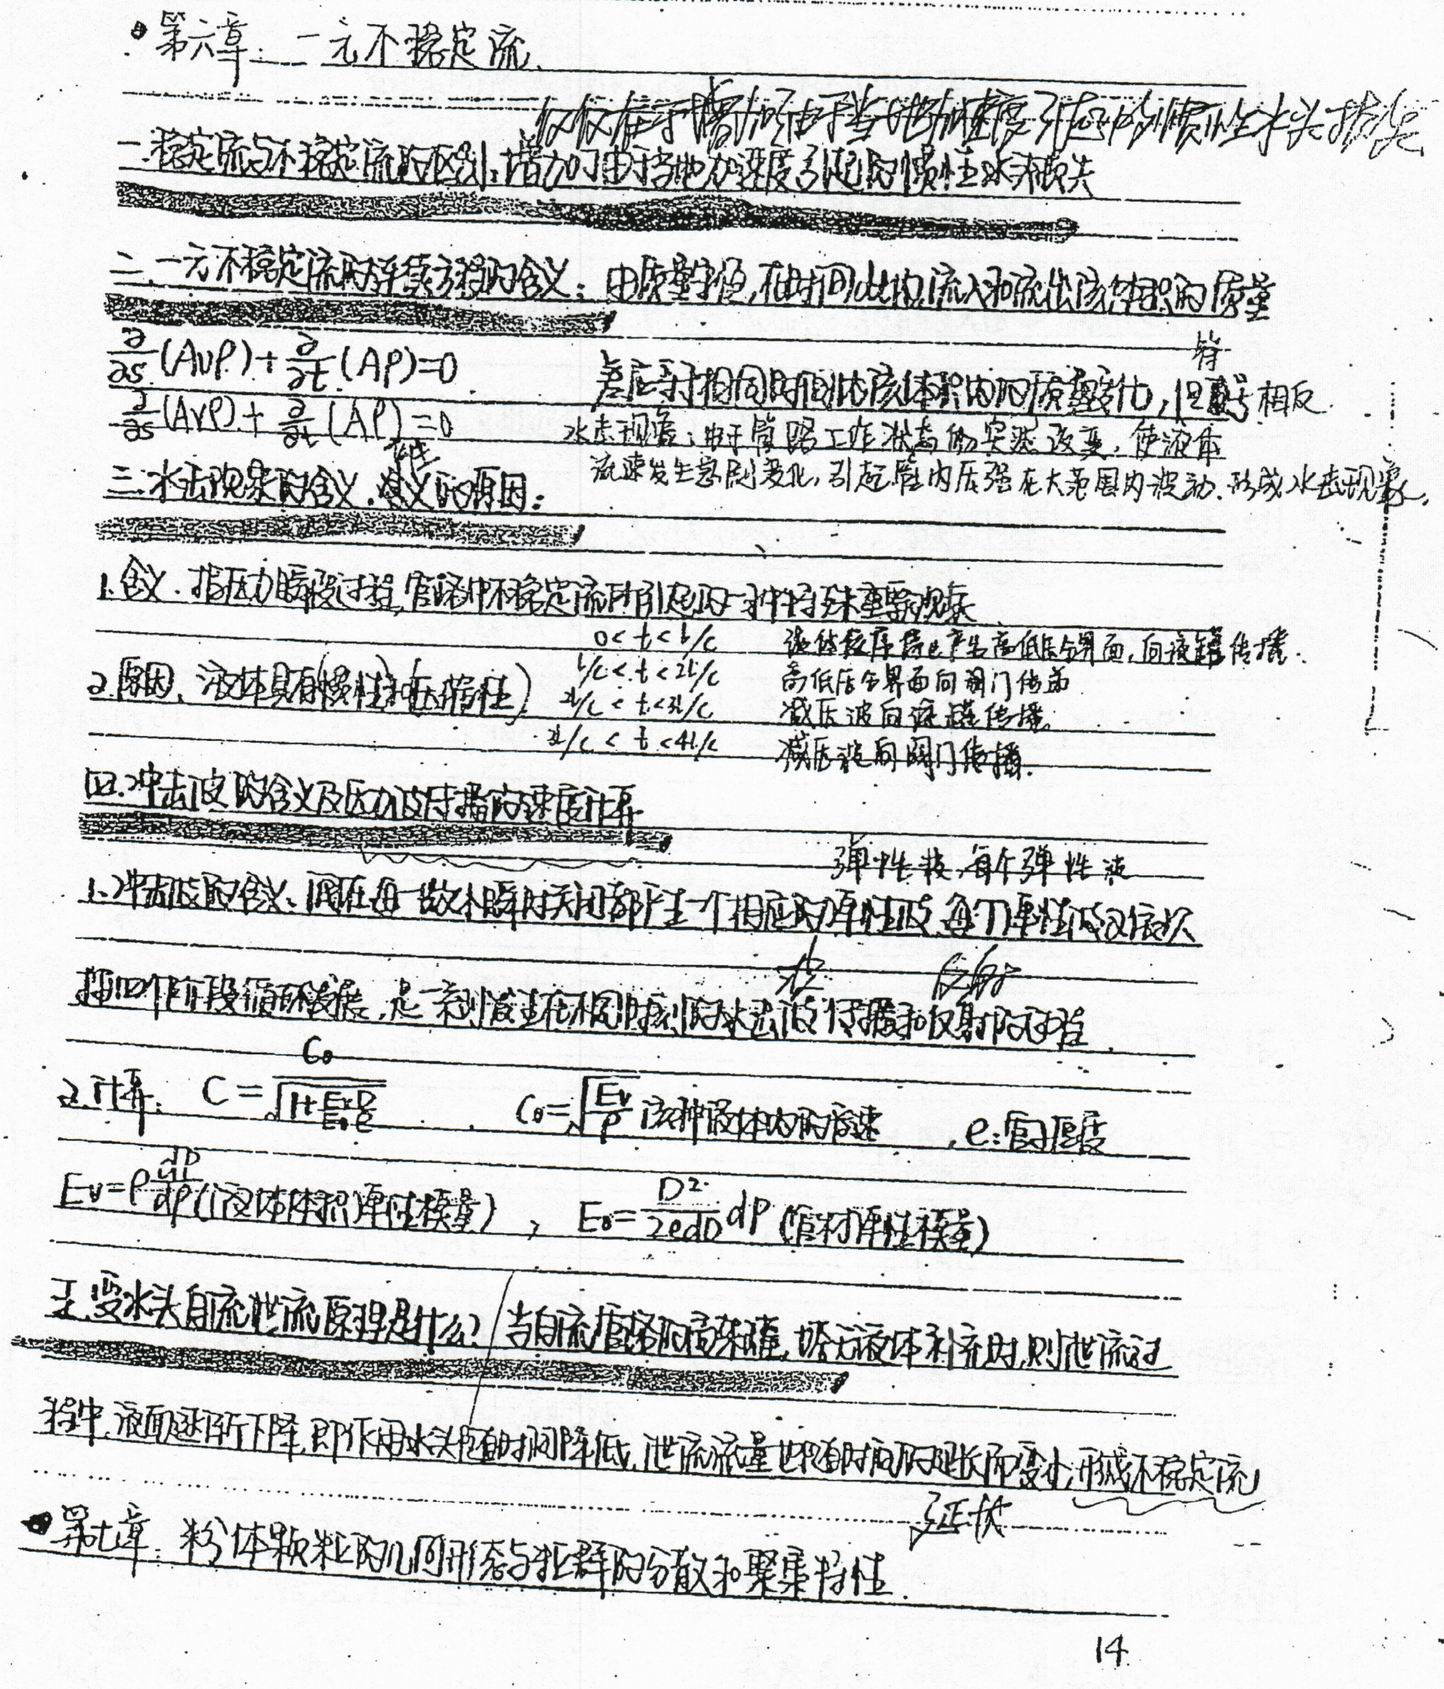 第六章：一元不稳定流.
仅仅在于增加了由于当地加速度引起的惯性水头损失
一.稳定流与不稳定流的区别：增加了由于当地加速度引起的惯性水头损失
二.一元不稳定流的连续方程的含义：由质量守恒,在时间dt内,流入和流出该体积的质量
∂/∂s(Avρ)+∂/∂t(Aρ)=0
符
差应等于相同时间内该体积内的质量变化,但符号相反.
∂/∂s(Avρ)+∂/∂t(Aρ)=0
水击现象：由于管路工作状态的突然改变，使液体
流速发生急剧变化，引起管内压强在大范围内波动.形成水击现象.
三.水击现象的含义.发生的原因：
1.含义.指压力瞬变过程,管路中不稳定流所引起的一种特殊重要现象
0<t<l/c
高低压分界面,向液罐传播.
2.原因、液体具有(惯性)和(压缩性)
l/c<t<2l/c 高低压分界面向阀门传
2l/c<t<3l/c 减压波向液罐传播.
3l/c<t<4l/c 减压波向阀门传播.
四.冲击波的含义及压力波传播的速度计算
弹性波,每个弹性波
1.冲击波的含义：阀在每一微小瞬时关闭都产生一个相应的弹性波,每个弹性波又依次
波 反射
按四个阶段循环发展,是一系列发生在不同时刻的水击波传播和反射的过程.
2.计算：C=C₀/√(1+EvD/E₀e) C₀=√(Ev/ρ) 该种液体内的声速 ,e:管壁厚度
Ev=ρdp/dρ(液体体积弹性模量), E₀=D²/2edD dp(管材弹性模量)
五.变水头自流泄流原理是什么?/当自流管路的高架罐,如无液体补充时,则泄流过
程中,液面逐渐下降,即作用水头随时间降低,泄流流量也随时间的延长而变小,形成不稳定流
延长
第七章：粉体颗粒的几何形态与粒群的分散和聚集特性.
14